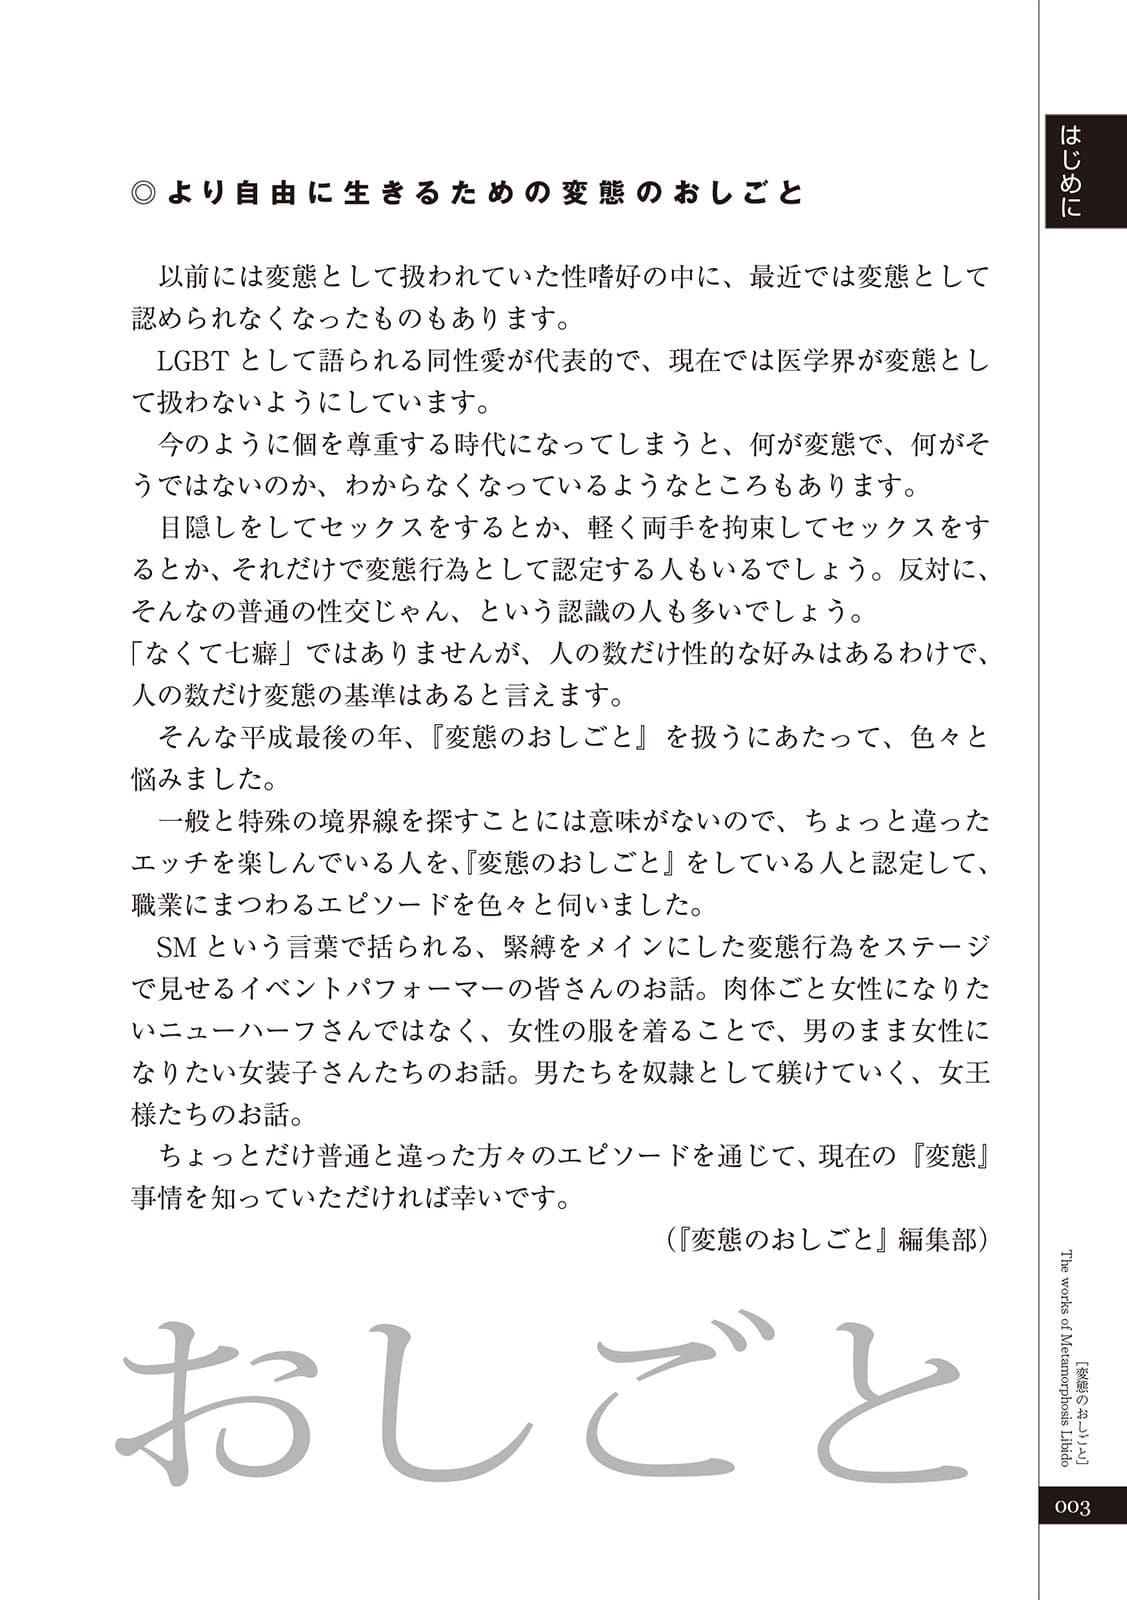 はじめに
◎より自由に生きるための変態のおしごと
以前には変態として扱われていた性嗜好の中に、最近では変態として
認められなくなったものもあります。
LGBT として語られる同性愛が代表的で、現在では医学界が変態とし
て扱わないようにしています。
今のように個を尊重する時代になってしまうと、何が変態で、何がそ
うではないのか、わからなくなっているようなところもあります。
目隠しをしてセックスをするとか、軽く両手を拘束してセックスをす
るとか、それだけで変態行為として認定する人もいるでしょう。反対に、
そんなの普通の性交じゃん、という認識の人も多いでしょう。
「なくて七癖」ではありませんが、人の数だけ性的な好みはあるわけで、
人の数だけ変態の基準はあると言えます。
そんな平成最後の年、『変態のおしごと』を扱うにあたって、色々と
悩みました。
一般と特殊の境界線を探すことには意味がないので、ちょっと違った
エッチを楽しんでいる人を、『変態のおしごと』をしている人と認定して、
職業にまつわるエピソードを色々と伺いました。
SM という言葉で括られる、緊縛をメインにした変態行為をステージ
で見せるイベントパフォーマーの皆さんのお話。肉体ごと女性になりた
いニューハーフさんではなく、女性の服を着ることで、男のまま女性に
なりたい女装子さんたちのお話。男たちを奴隷として躾けていく、女王
様たちのお話。
ちょっとだけ普通と違った方々のエピソードを通じて、現在の『変態』
事情を知っていただければ幸いです。
（『変態のおしごと』編集部）
おしごと
［変態のおしごと］
The works of Metamorphosis Libido
003